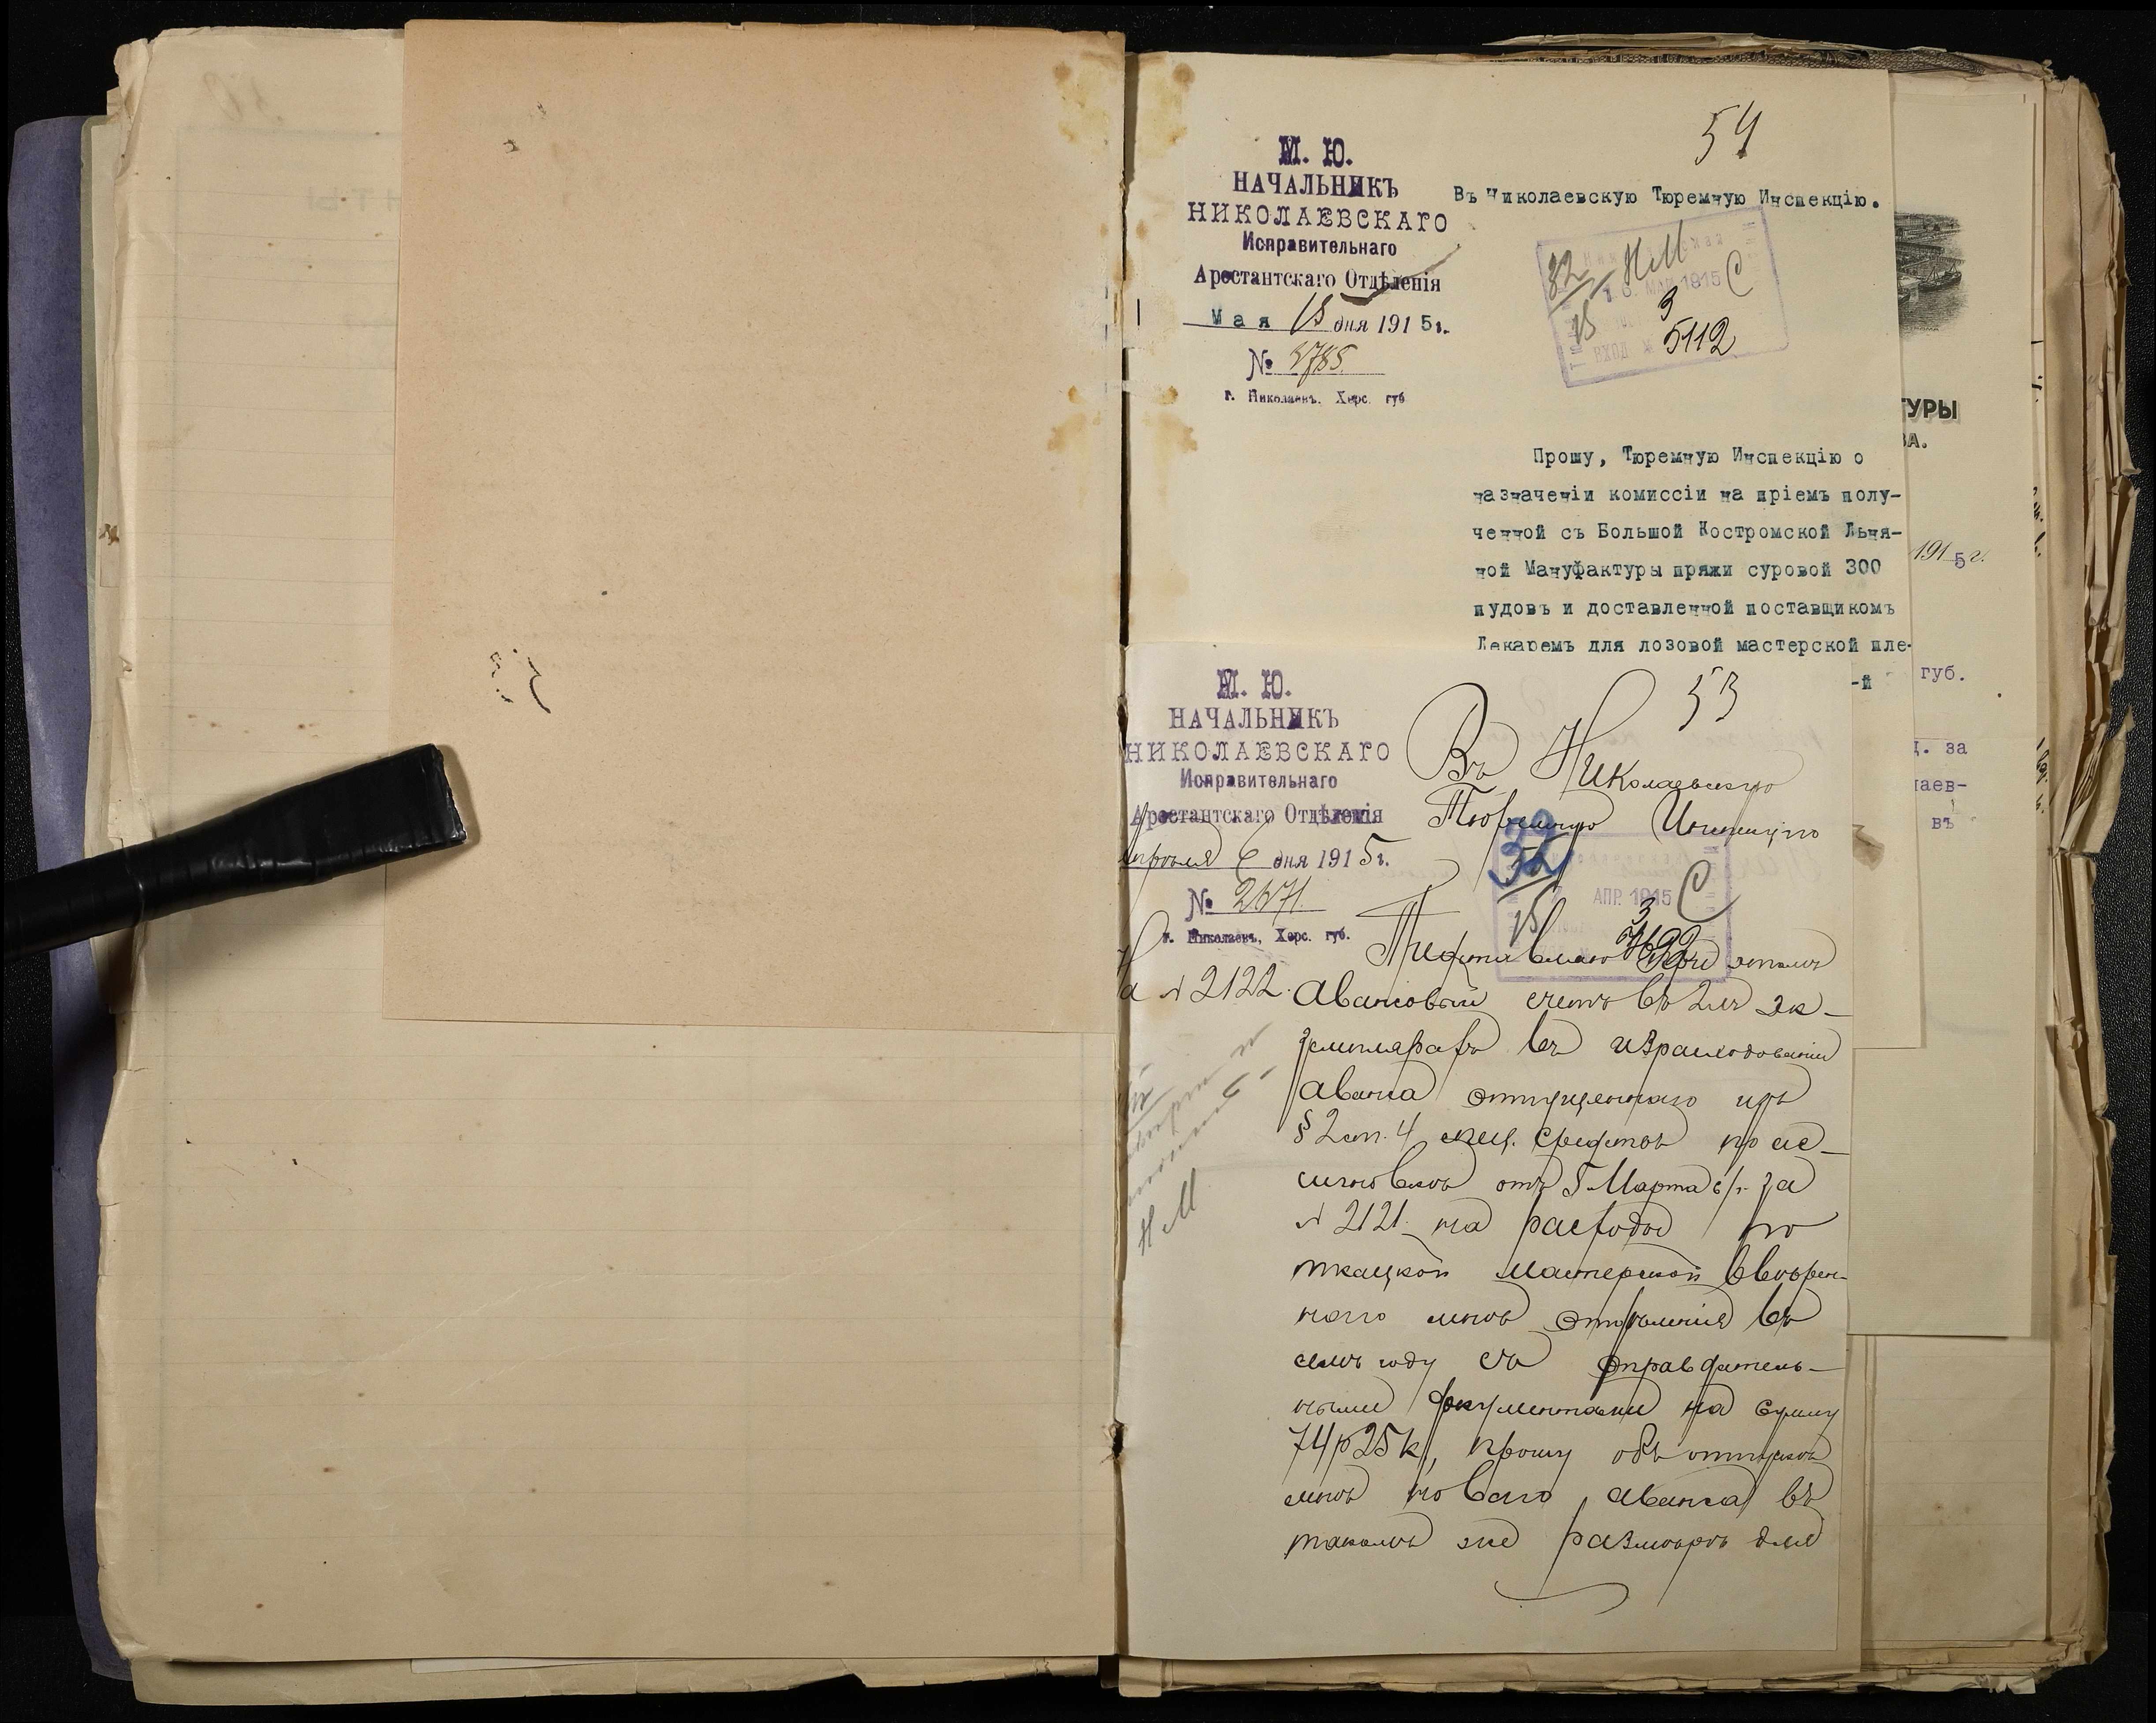 54
М. Ю.
НАЧАЛЬНИКЪ
НИКОЛАЕВСКАГО
Исправительнаго
Арестантскаго Отдѣленія
Мая 15 дня 1915 г.
№ 3785.
г. Николаевъ, Херс. губ.
Въ Николаевскую Тюремную Инспекцію.
32 НМ
15 МАЯ 1915 С
3
ВХОД. № 5112
Прошу, Тюремную Инспекцію о
назначеніи комиссіи на пріемъ полу-
ченной съ Большой Костромской Льня-
ной Мануфактуры пряжи суровой 300
пудовъ и доставленной поставщикомъ
Лекаремъ для лозовой мастерской пле-
-й
53
М. Ю.
НАЧАЛЬНИКЪ
НИКОЛАЕВСКАГО
Исправительнаго
Арестантскаго Отдѣленія
Апрѣля 6 дня 1915 г.
№ 2671
г. Николаевъ, Херс. губ.
На № 2122.
Въ Николаевскую
Тюремную Инспекцію
32
15
АПР. 1915 С
3
Представляя при этомъ
авансовый счетъ въ 2хъ эк-
земплярахъ въ израсходованіи
аванса отпущеннаго изъ
§ 2 ст. 4 спец. средствъ по ас-
сигновкѣ отъ 5 Марта с/г. за
№ 2121 на расходы по
ткацкой мастерской ввѣрен-
наго мнѣ отдѣленія въ
семъ году съ оправдатель-
ными документами на сумму
74 р 25 к, прошу объ отпускѣ
мнѣ новаго аванса въ
такомъ же размѣрѣ для
НМ
ТУРЫ
ВА.
1915 г.
губ.
д. за
лаев-
въ